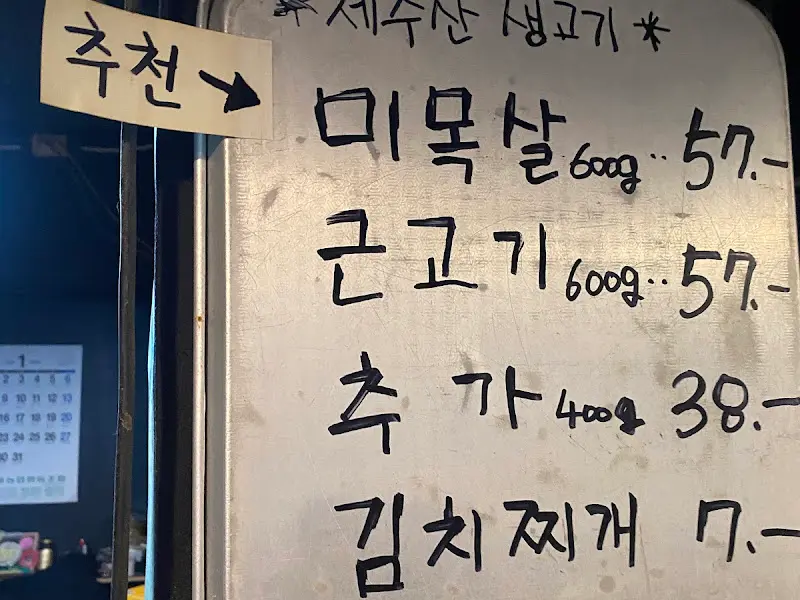 * 제주산 생고기 *
추천 →
미목살 600g.. 57.-
근고기 600g.. 57.-
추가 400g 38.-
김치찌개 7.-
1
2 3 4 5 6
9 10 11 12 13
16 17 18 19 20
23 24 25 26 27
30 31